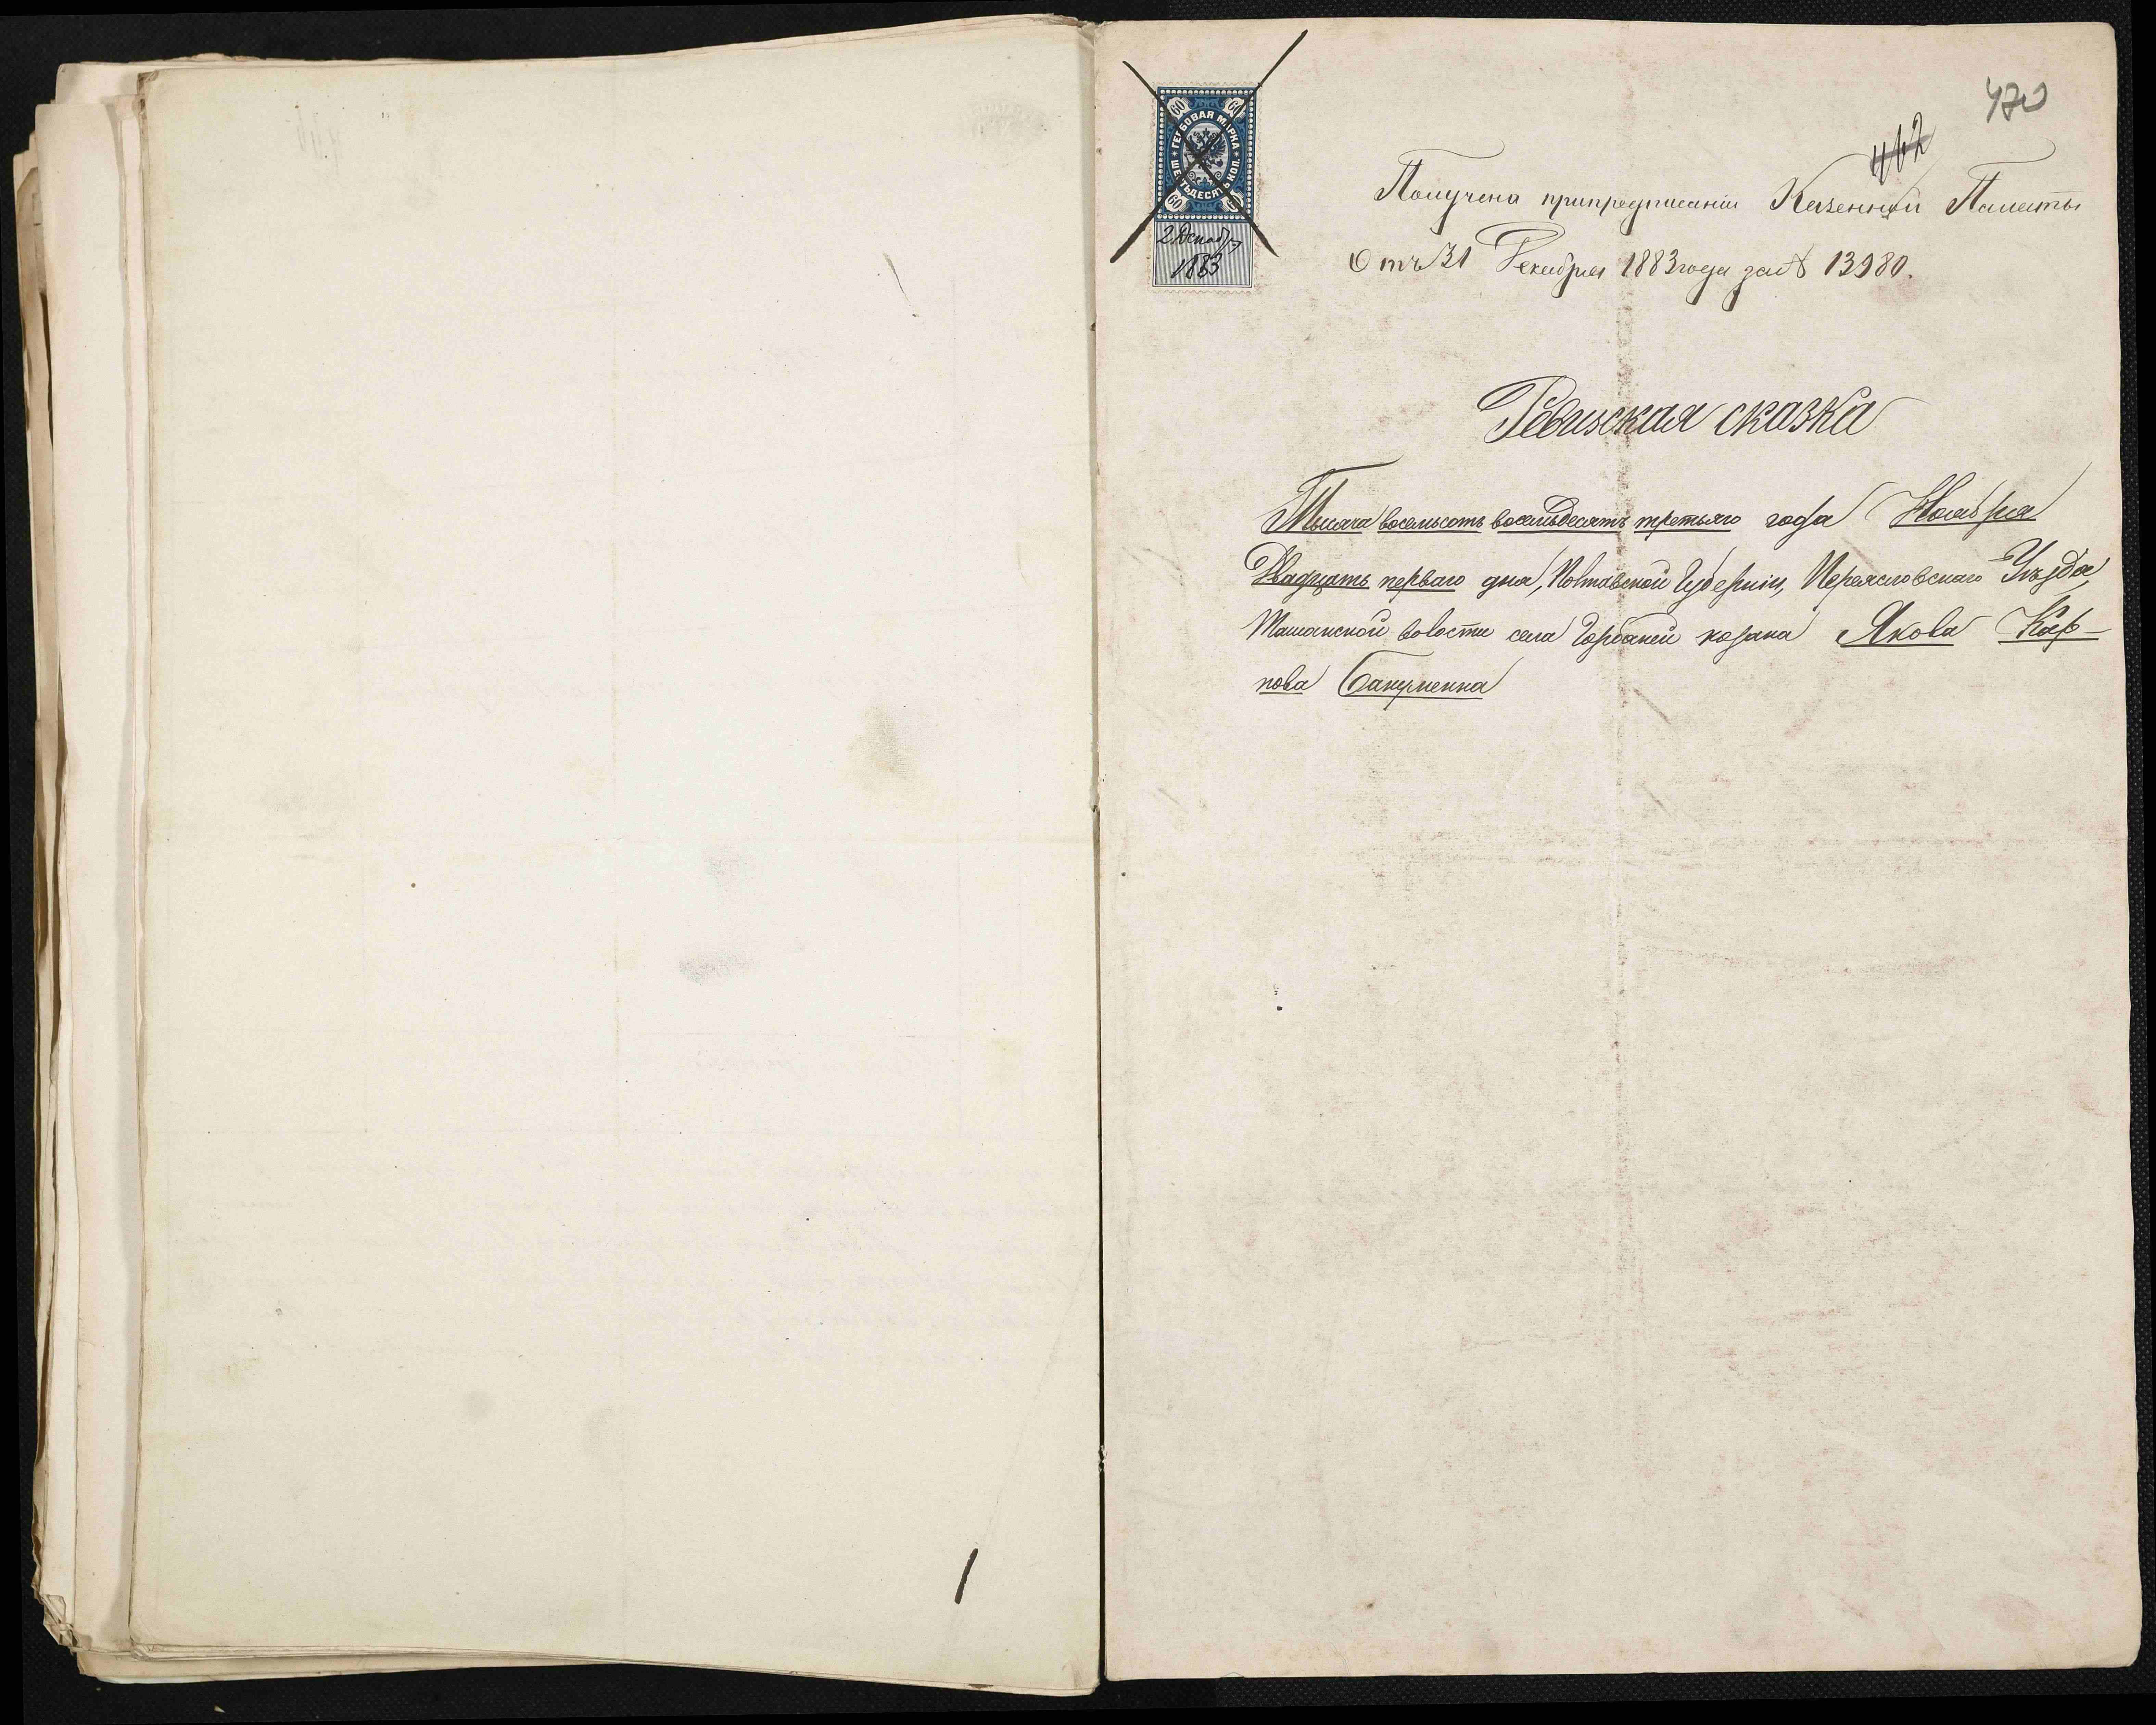 470
462
60 60
ГЕРБОВАЯ МАРКА
ШЕСТЬДЕСЯТЪ КОП.
60 60
2 Декабр.
1883
Получена припредписаніи Казенной Палаты
Отъ 31 Декабря 1883 года за № 13980.
Ревизская сказка
Тысяча восемьсотъ восемьдесятъ третьяго года Ноября
Двадцать перваго дня, Полтавской Губерніи, Переясловскаго Уѣзда,
Ташанской волости села Горбаней козака Якова Кар-
пова Бакуменка